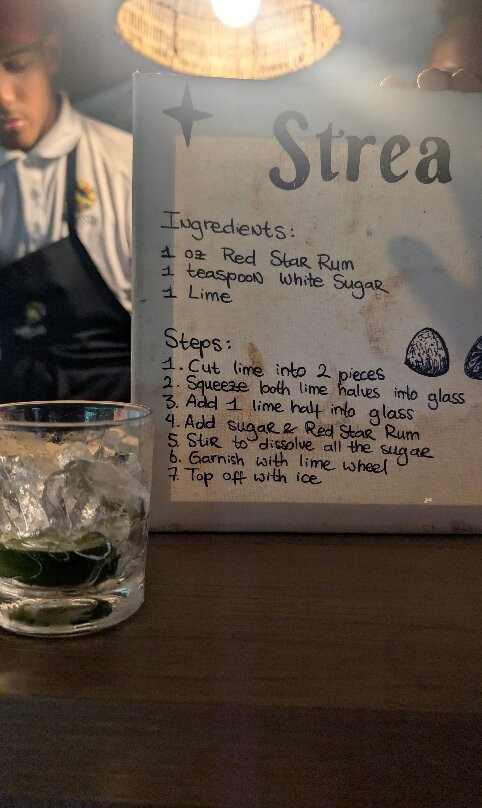 Strea
Ingredients:
1 oz Red Star Rum
1 teaspoon White Sugar
1 Lime
Steps:
1. Cut lime into 2 pieces
2. Squeeze both lime halves into glass
3. Add 1 lime half into glass
4. Add sugar & Red Star Rum
5. Stir to dissolve all the sugar
6. Garnish with lime wheel
7. Top off with ice